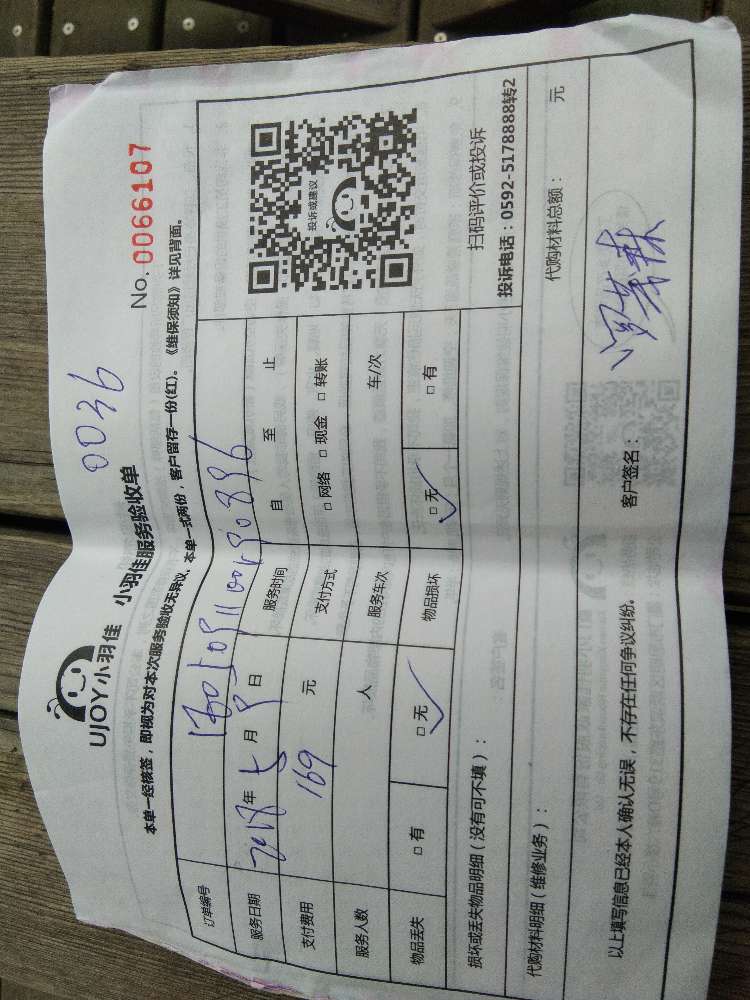 0036
UJOY小羽佳 小羽佳服务验收单
No. 0066107
本单一经核签，即视为对本次服务验收无异议，本单一式两份，客户留存一份(红)。《维保须知》详见背面。
订单编号
服务日期 2018年 7月 9日 服务时间 自 至 止
支付费用 169 元 支付方式 □网络 □现金 □转账
服务人数 人 服务车次 车/次
物品丢失 □有 □无 物品损坏 □无 □有
投诉或建议
扫码评价或投诉
投诉电话：0592-5178888转2
损坏或丢失物品明细（没有可不填）：
代购材料明细（维修业务）： 代购材料总额： 元
以上填写信息已经本人确认无误，不存在任何争议纠纷。 客户签名：